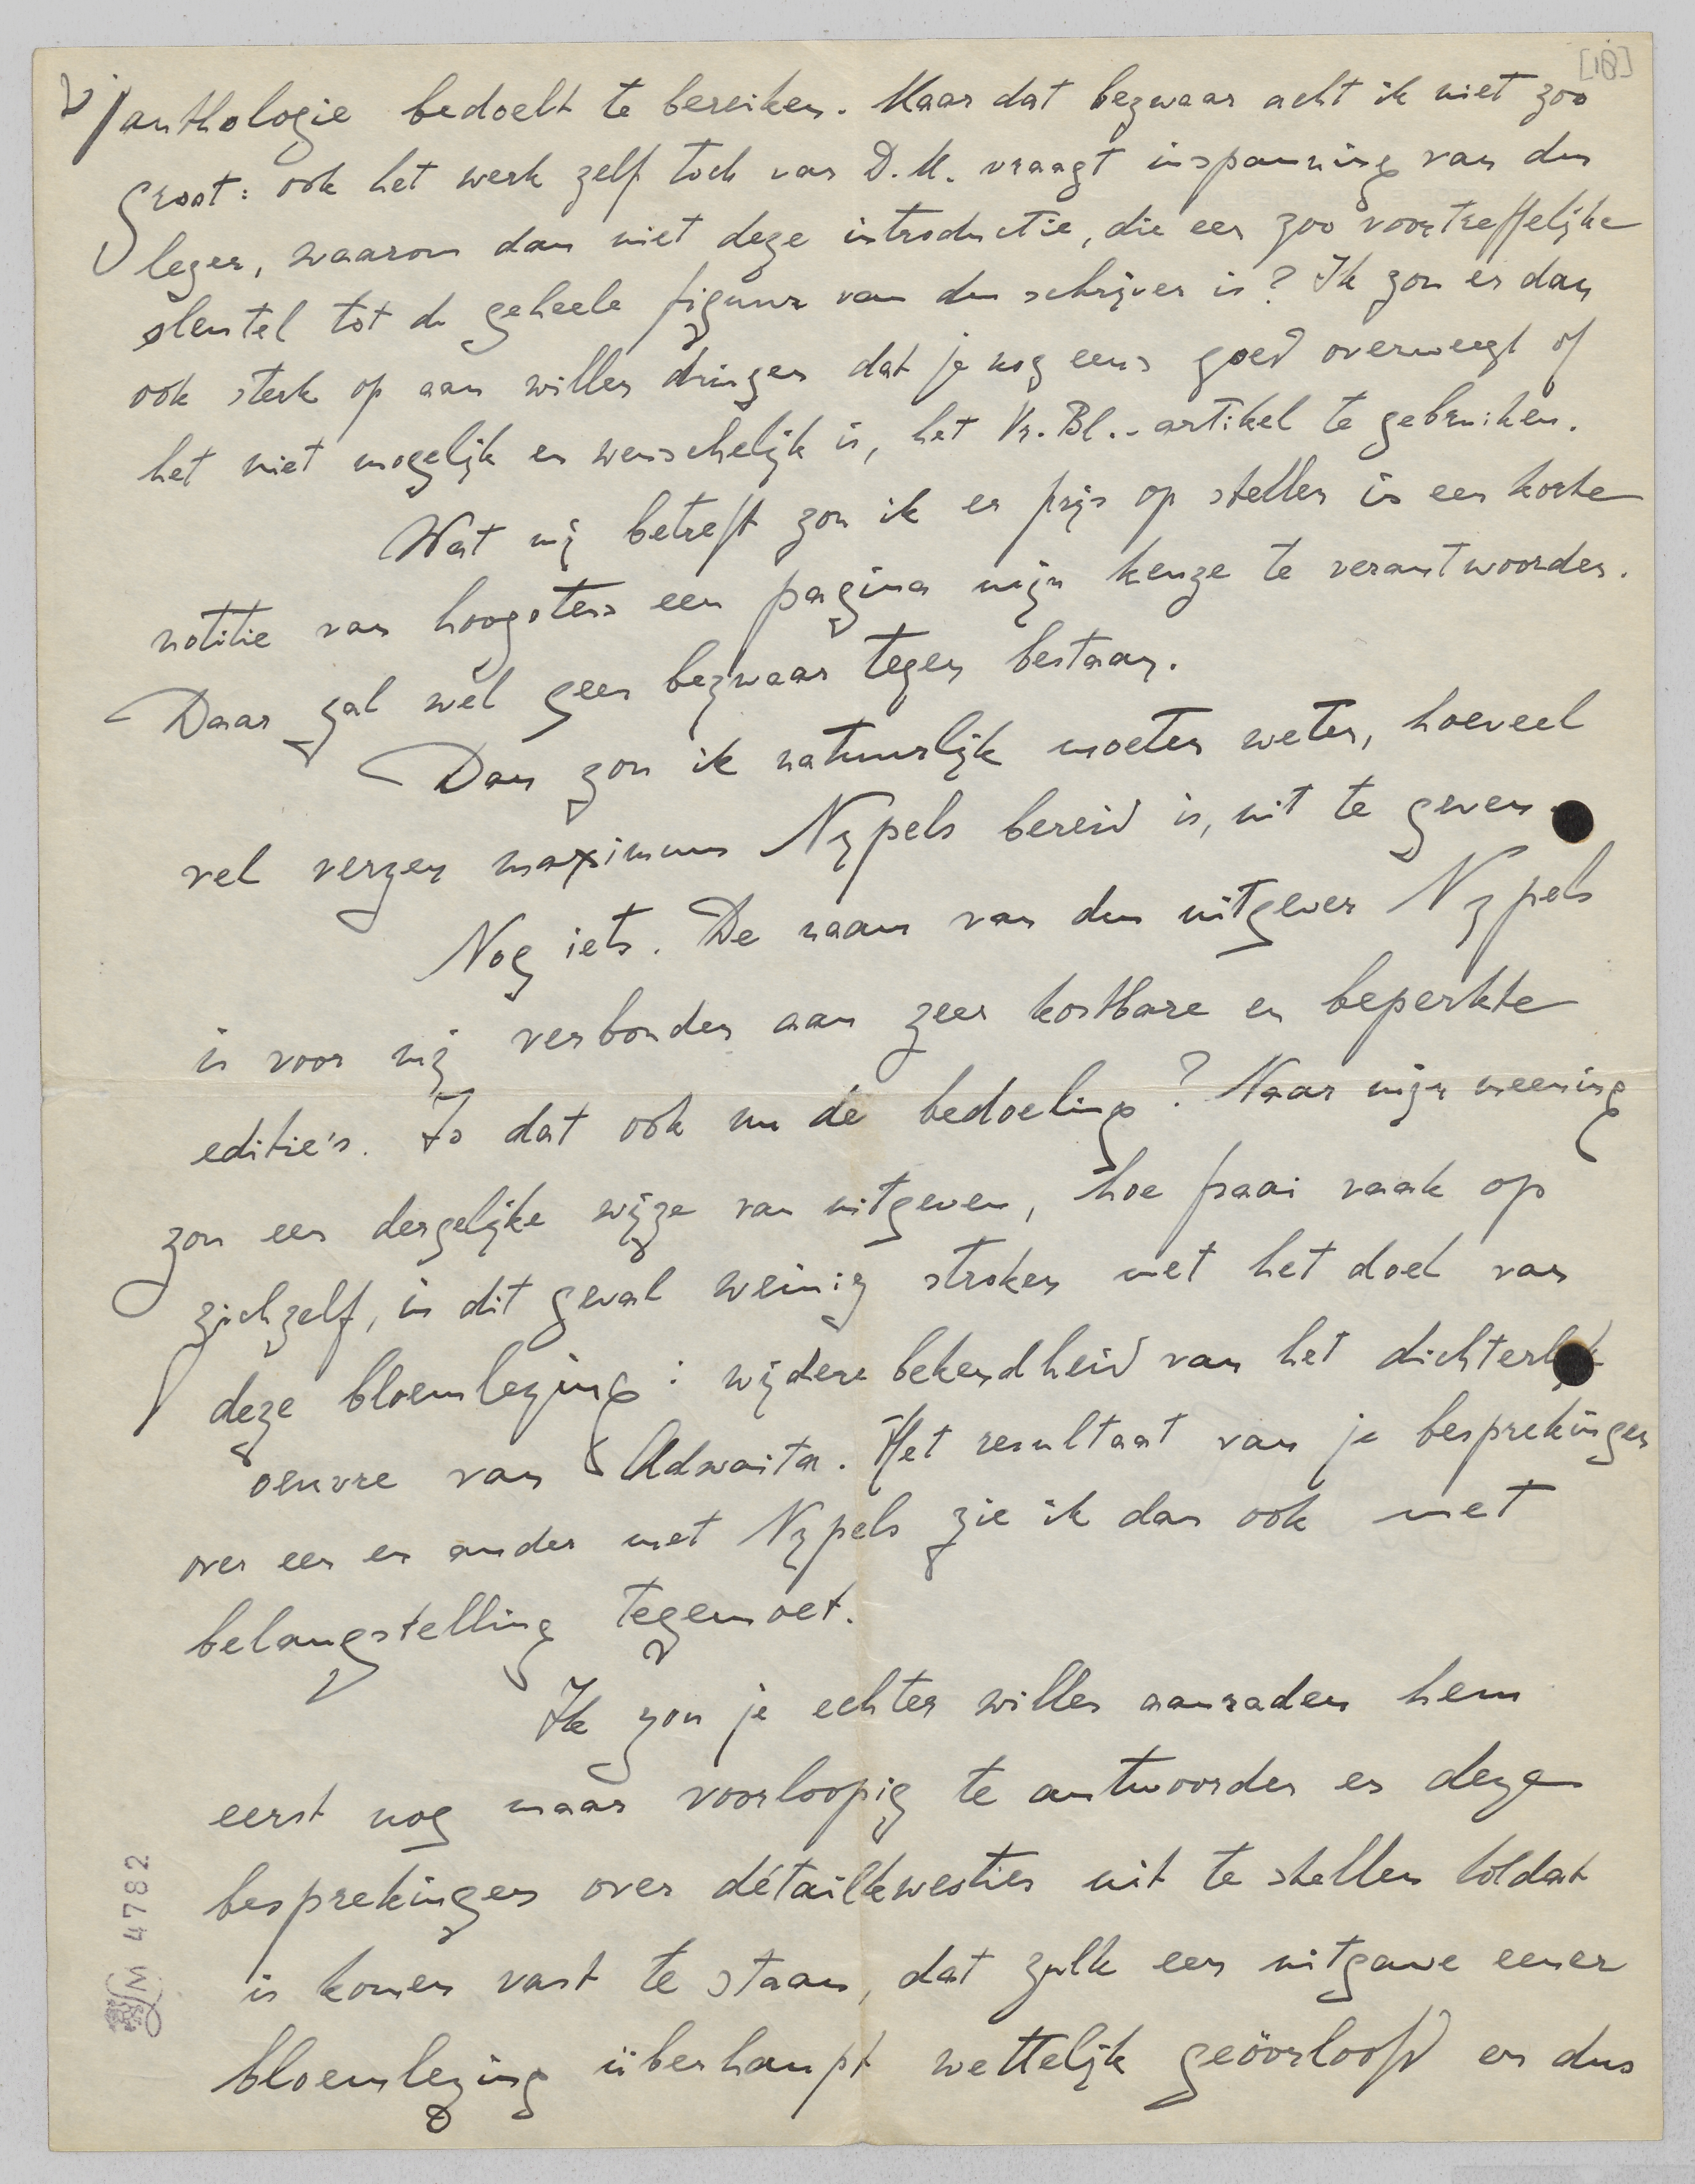 [18]
V/ anthologie bedoelt te bereiken. Maar dat bezwaar acht ik niet zoo
groot: ook het werk zelf toch van D.M. vraagt inspanning van den
lezer, waarom dan niet deze introductie, die een zoo voortreffelijke
sleutel tot de geheele figuur van den schrijver is? Ik zou er dan
ook sterk op aan willen dringen dat je nog eens goed overweegt of
het niet mogelijk en wenschelijk is, het Vr. Bl.-artikel te gebruiken.
Wat mij betreft zou ik er prijs op stellen in een korte
notitie van hoogstens een pagina mijn keuze te verantwoorden.
Daar zal wel geen bezwaar tegen bestaan.
Dan zou ik natuurlijk moeten weten, hoeveel
vel verzen maximum Nypels bereid is, uit te geven.
Nog iets. De naam van den uitgever Nypels
is voor mij verbonden aan zeer kostbare en beperkte
editie's. Is dat ook nu de bedoeling? Naar mijn meening
zou een dergelijke wijze van uitgeven, hoe fraai vaak op
zichzelf, in dit geval weinig stroken met het doel van
deze bloemlezing: wijdere bekendheid van het dichterlijk
oeuvre van Adwaita. Het resultaat van je besprekingen
over een en ander met Nypels zie ik dan ook met
belangstelling tegemoet.
Ik zou je echter willen aanraden hem
eerst nog maar voorloopig te antwoorden en deze
besprekingen over détailkwesties uit te stellen totdat
is komen vast te staan, dat zulk een uitgave eener
bloemlezing überhaupt wettelijk geöorloofd en dus
LM 4782